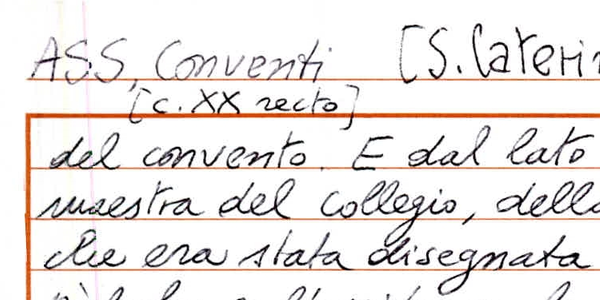 ASS, Conventi [S. Caterin
[c. XX recto]
del convento. E dal lato
maestra del collegio, dello
che era stata disegnata